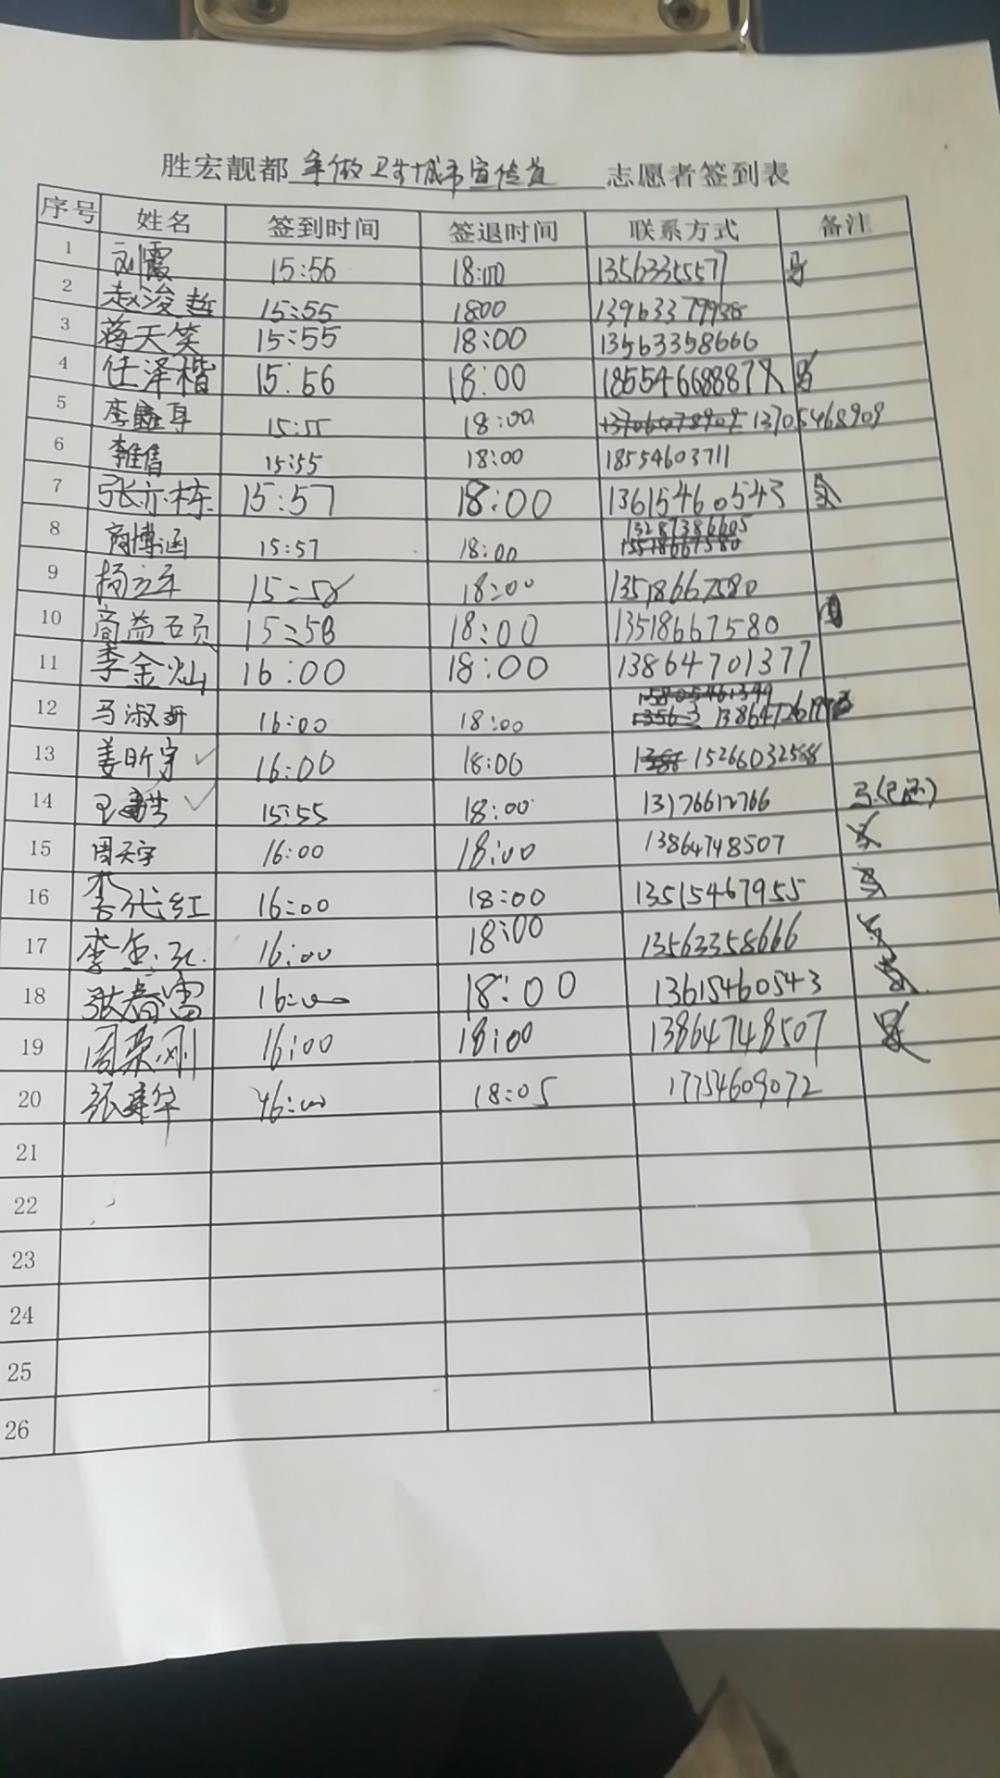 胜宏靓都 争做卫生城市宣传员 志愿者签到表
序号 姓名 签到时间 签退时间 联系方式 备注
1 刘霞 15:56 18:00 13563355577
2 赵浚哲 15:55 1800
3 蒋天笑 15:55 18:00 13563358666
4 任泽楷 15:56 18:00
5 15:55 18:00 13705468909
6 18:00 15:55 18554603711
7 张亦栋 15:57 18:00 13615460543
8 商博涵 15:57 18:00 13287386605
9 杨立军 15:58 18:00 13518667580
10 商益硕 15:58 18:00 13518667580
11 李金灿 16:00 18:00 13864701377
12 马淑妍 16:00 18:00
13 姜昕宇 16:00 18:00 15266032588
14 15:55 18:00 13176612766
15 周天宇 16:00 18:00 13864748507
16 李代红 16:00 18:00 13515467955
17 16:00 18:00 13563358666
18 张春雷 16:00 18:00 13615460543
19 周荣刚 16:00 18:00 13864748507
20 张建华 16:00 18:05 17754609072
21
22
23
24
25
26